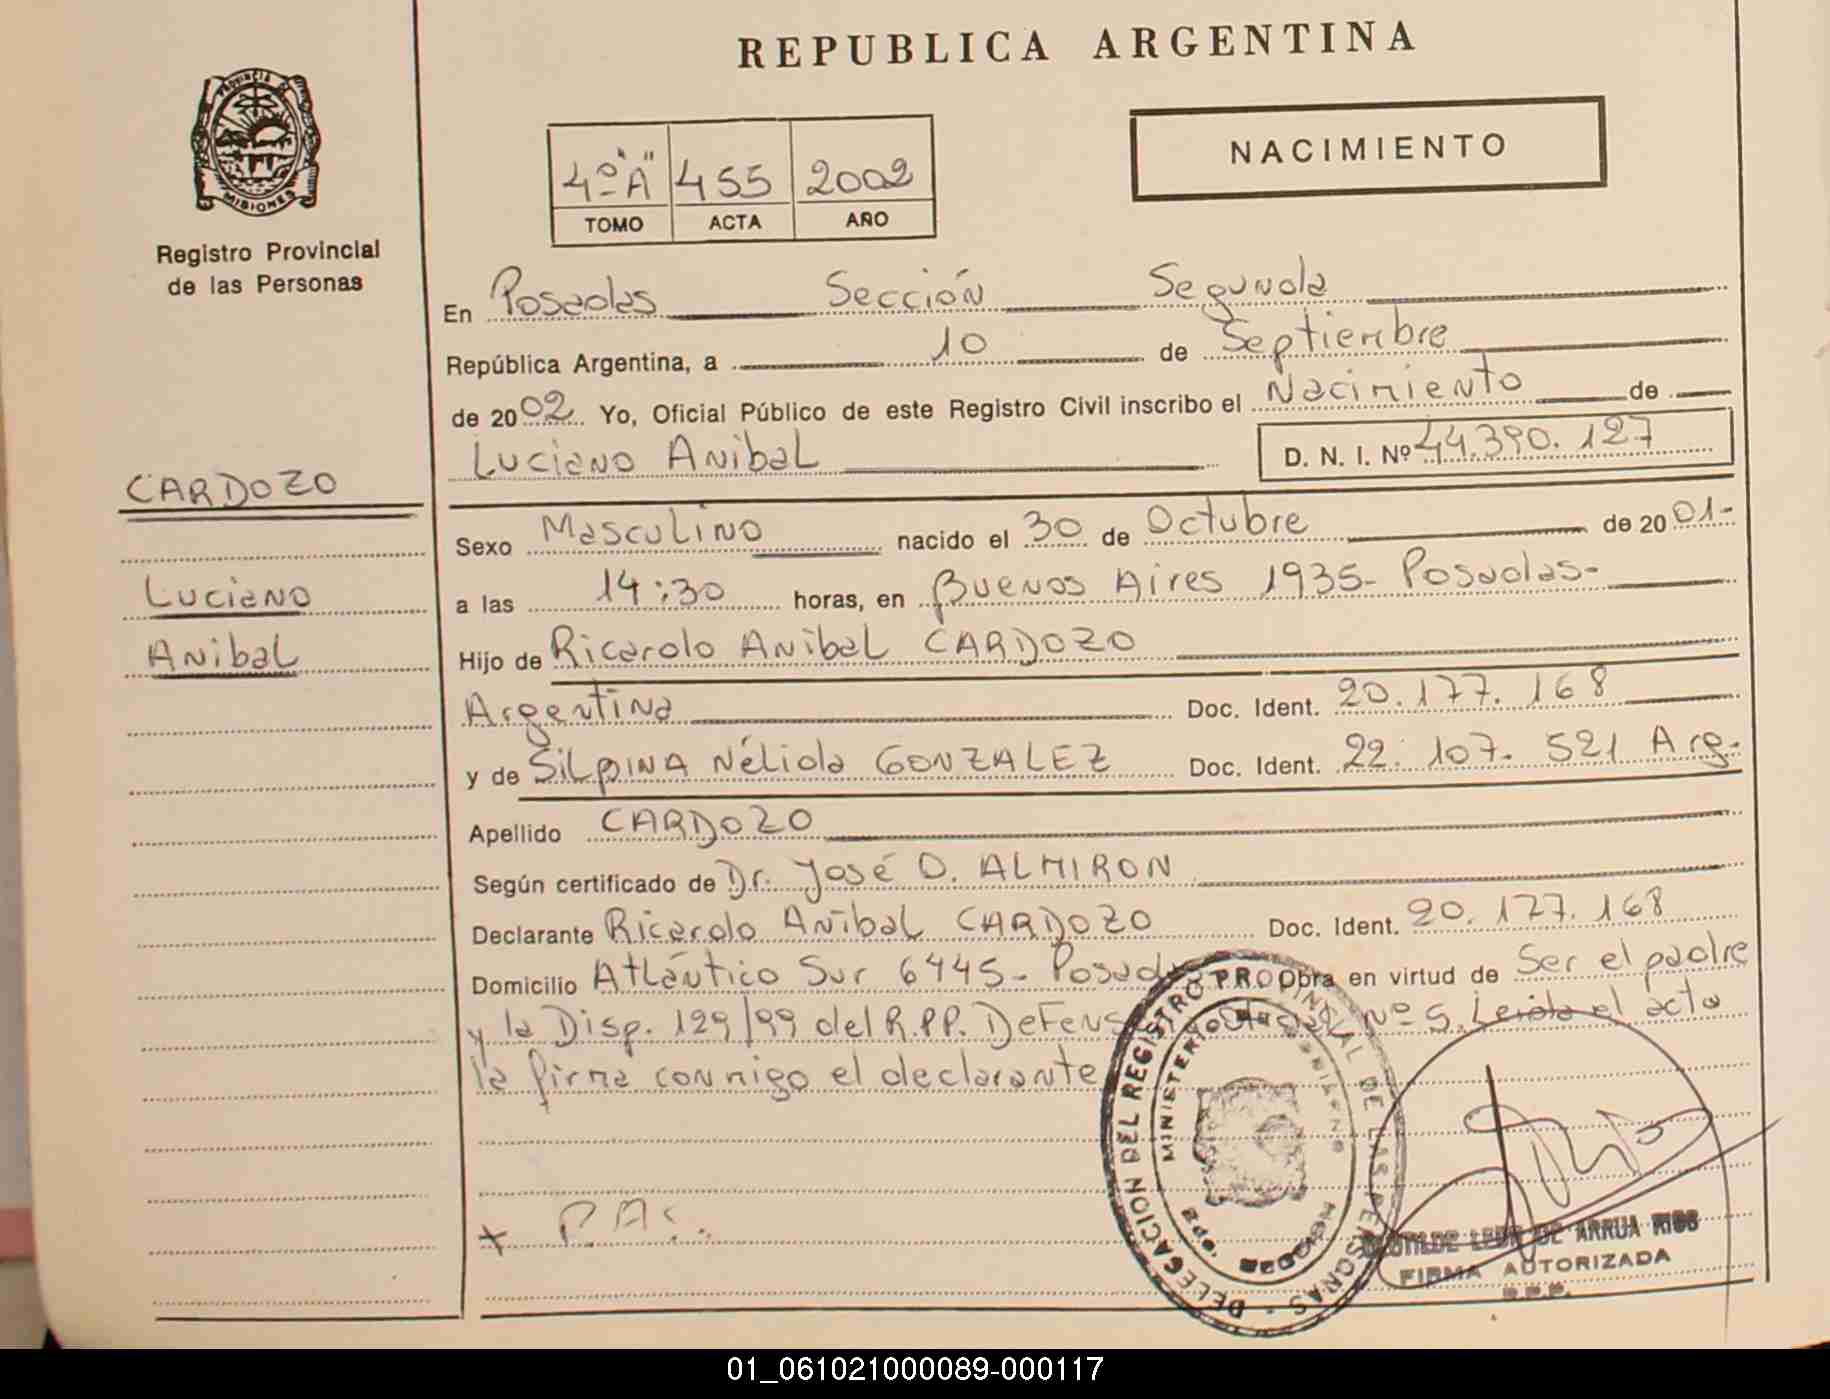 REPUBLICA ARGENTINA
PROVINCIA DE
MISIONES
Registro Provincial
de las Personas
4º "A" 455 2002
TOMO ACTA AÑO
NACIMIENTO
En Posadas Sección Segunda
República Argentina, a 10 de Septiembre
de 2002. Yo, Oficial Público de este Registro Civil inscribo el Nacimiento de
Luciano Anibal D. N. I. Nº 44.390.127
CARDOZO
Luciano
Anibal
Sexo Masculino nacido el 30 de Octubre de 2001-
a las 14:30 horas, en Buenos Aires 1935- Posadas-
Hijo de Ricardo Anibal CARDOZO
Argentina Doc. Ident. 20.177.168
y de Silvina Nélida GONZALEZ Doc. Ident. 22.107.521 Arg.
Apellido CARDOZO
Según certificado de Dr. José O. ALMIRON
Declarante Ricardo Anibal CARDOZO Doc. Ident. 20.177.168
Domicilio Atlántico Sur 6445- Posadas Obra en virtud de Ser el padre
y la Disp. 129/99 del R.P.P. Nº 5. Leida el acta
la firma conmigo el declarante
DELEGACION DEL REGISTRO PROVINCIAL DE LAS PERSONAS -
MINISTERIO DE
x R.A.C.
DE ARRUA RIOS
FIRMA AUTORIZADA
R.P.P.
01_061021000089-000117